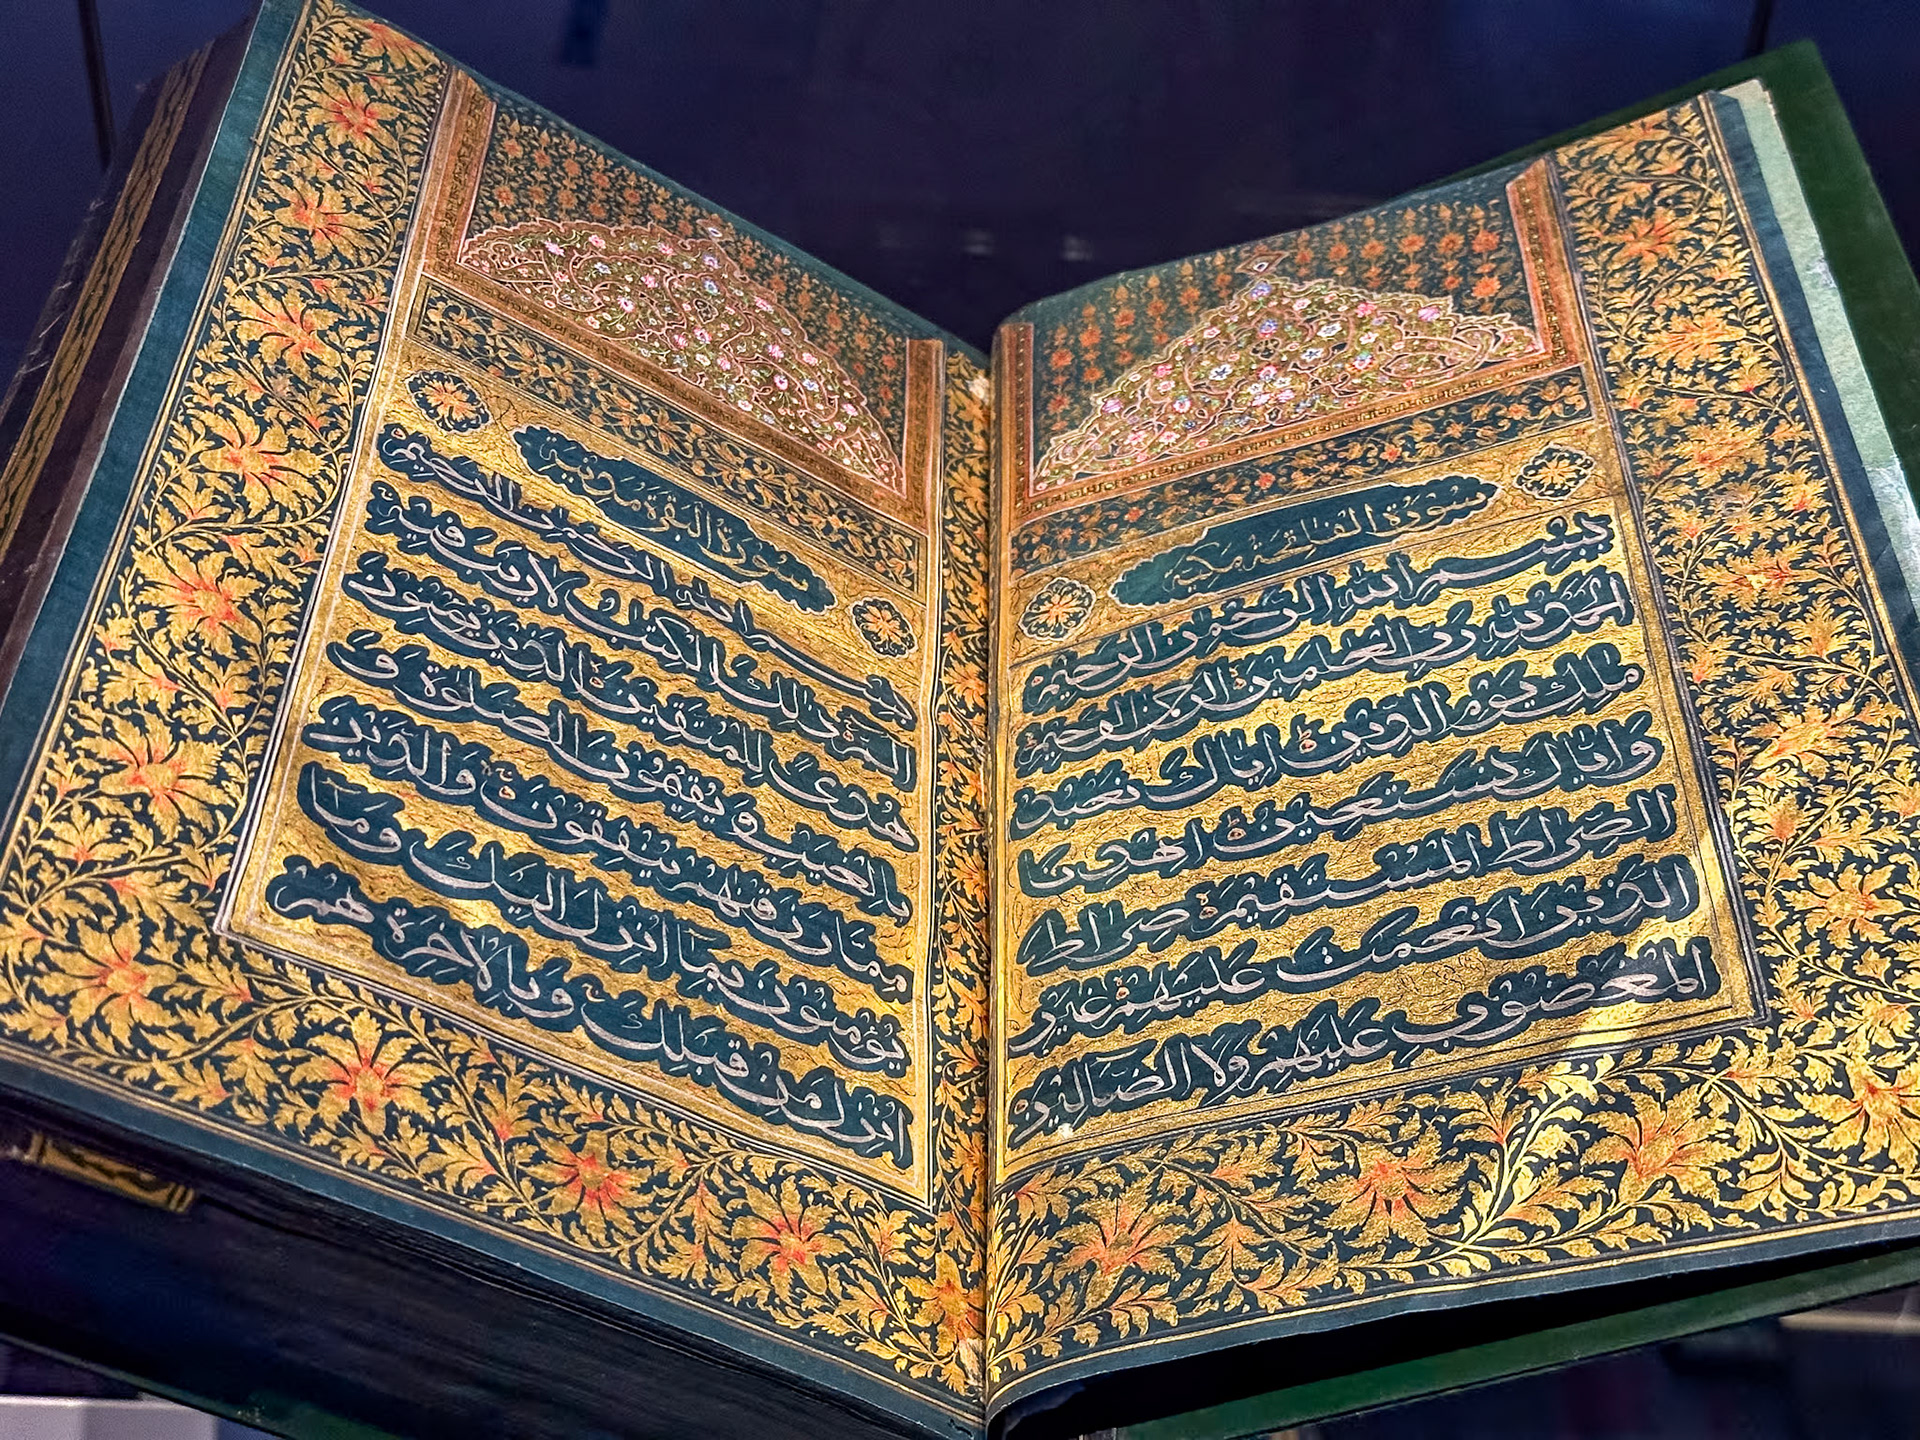 سورة الفاتحة مكية
بِسْمِ اللّٰهِ الرَّحْمٰنِ الرَّحِيْمِ
اَلْحَمْدُ لِلّٰهِ رَبِّ الْعٰلَمِيْنَ الرَّحْمٰنِ الرَّحِيْمِ
مٰلِكِ يَوْمِ الدِّيْنِ اِيَّاكَ نَعْبُدُ
وَاِيَّاكَ نَسْتَعِيْنُ اِهْدِنَا
الصِّرَاطَ الْمُسْتَقِيْمَ صِرَاطَ
الَّذِيْنَ اَنْعَمْتَ عَلَيْهِمْ غَيْرِ
الْمَغْضُوْبِ عَلَيْهِمْ وَلَا الضَّالِّيْنَ
سورة البقرة مدنية
بِسْمِ اللّٰهِ الرَّحْمٰنِ الرَّحِيْمِ
الٓمّٓ ذٰلِكَ الْكِتٰبُ لَا رَيْبَ فِيْهِ
هُدًى لِّلْمُتَّقِيْنَ الَّذِيْنَ يُؤْمِنُوْنَ
بِالْغَيْبِ وَيُقِيْمُوْنَ الصَّلٰوةَ وَ
مِمَّا رَزَقْنٰهُمْ يُنْفِقُوْنَ وَالَّذِيْنَ
يُؤْمِنُوْنَ بِمَا اُنْزِلَ اِلَيْكَ وَمَا
اُنْزِلَ مِنْ قَبْلِكَ وَبِالْاٰخِرَةِ هُمْ